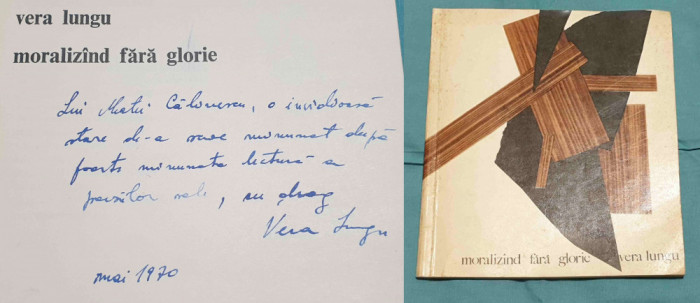 vera lungu
moralizînd fără glorie
Lui Matei Călinescu, o invidioasă
stare de-a mare minunat după
foarte minunata lectură a
poeziilor sale, cu drag
Vera Lungu
mai 1970
moralizînd fără glorie vera lungu